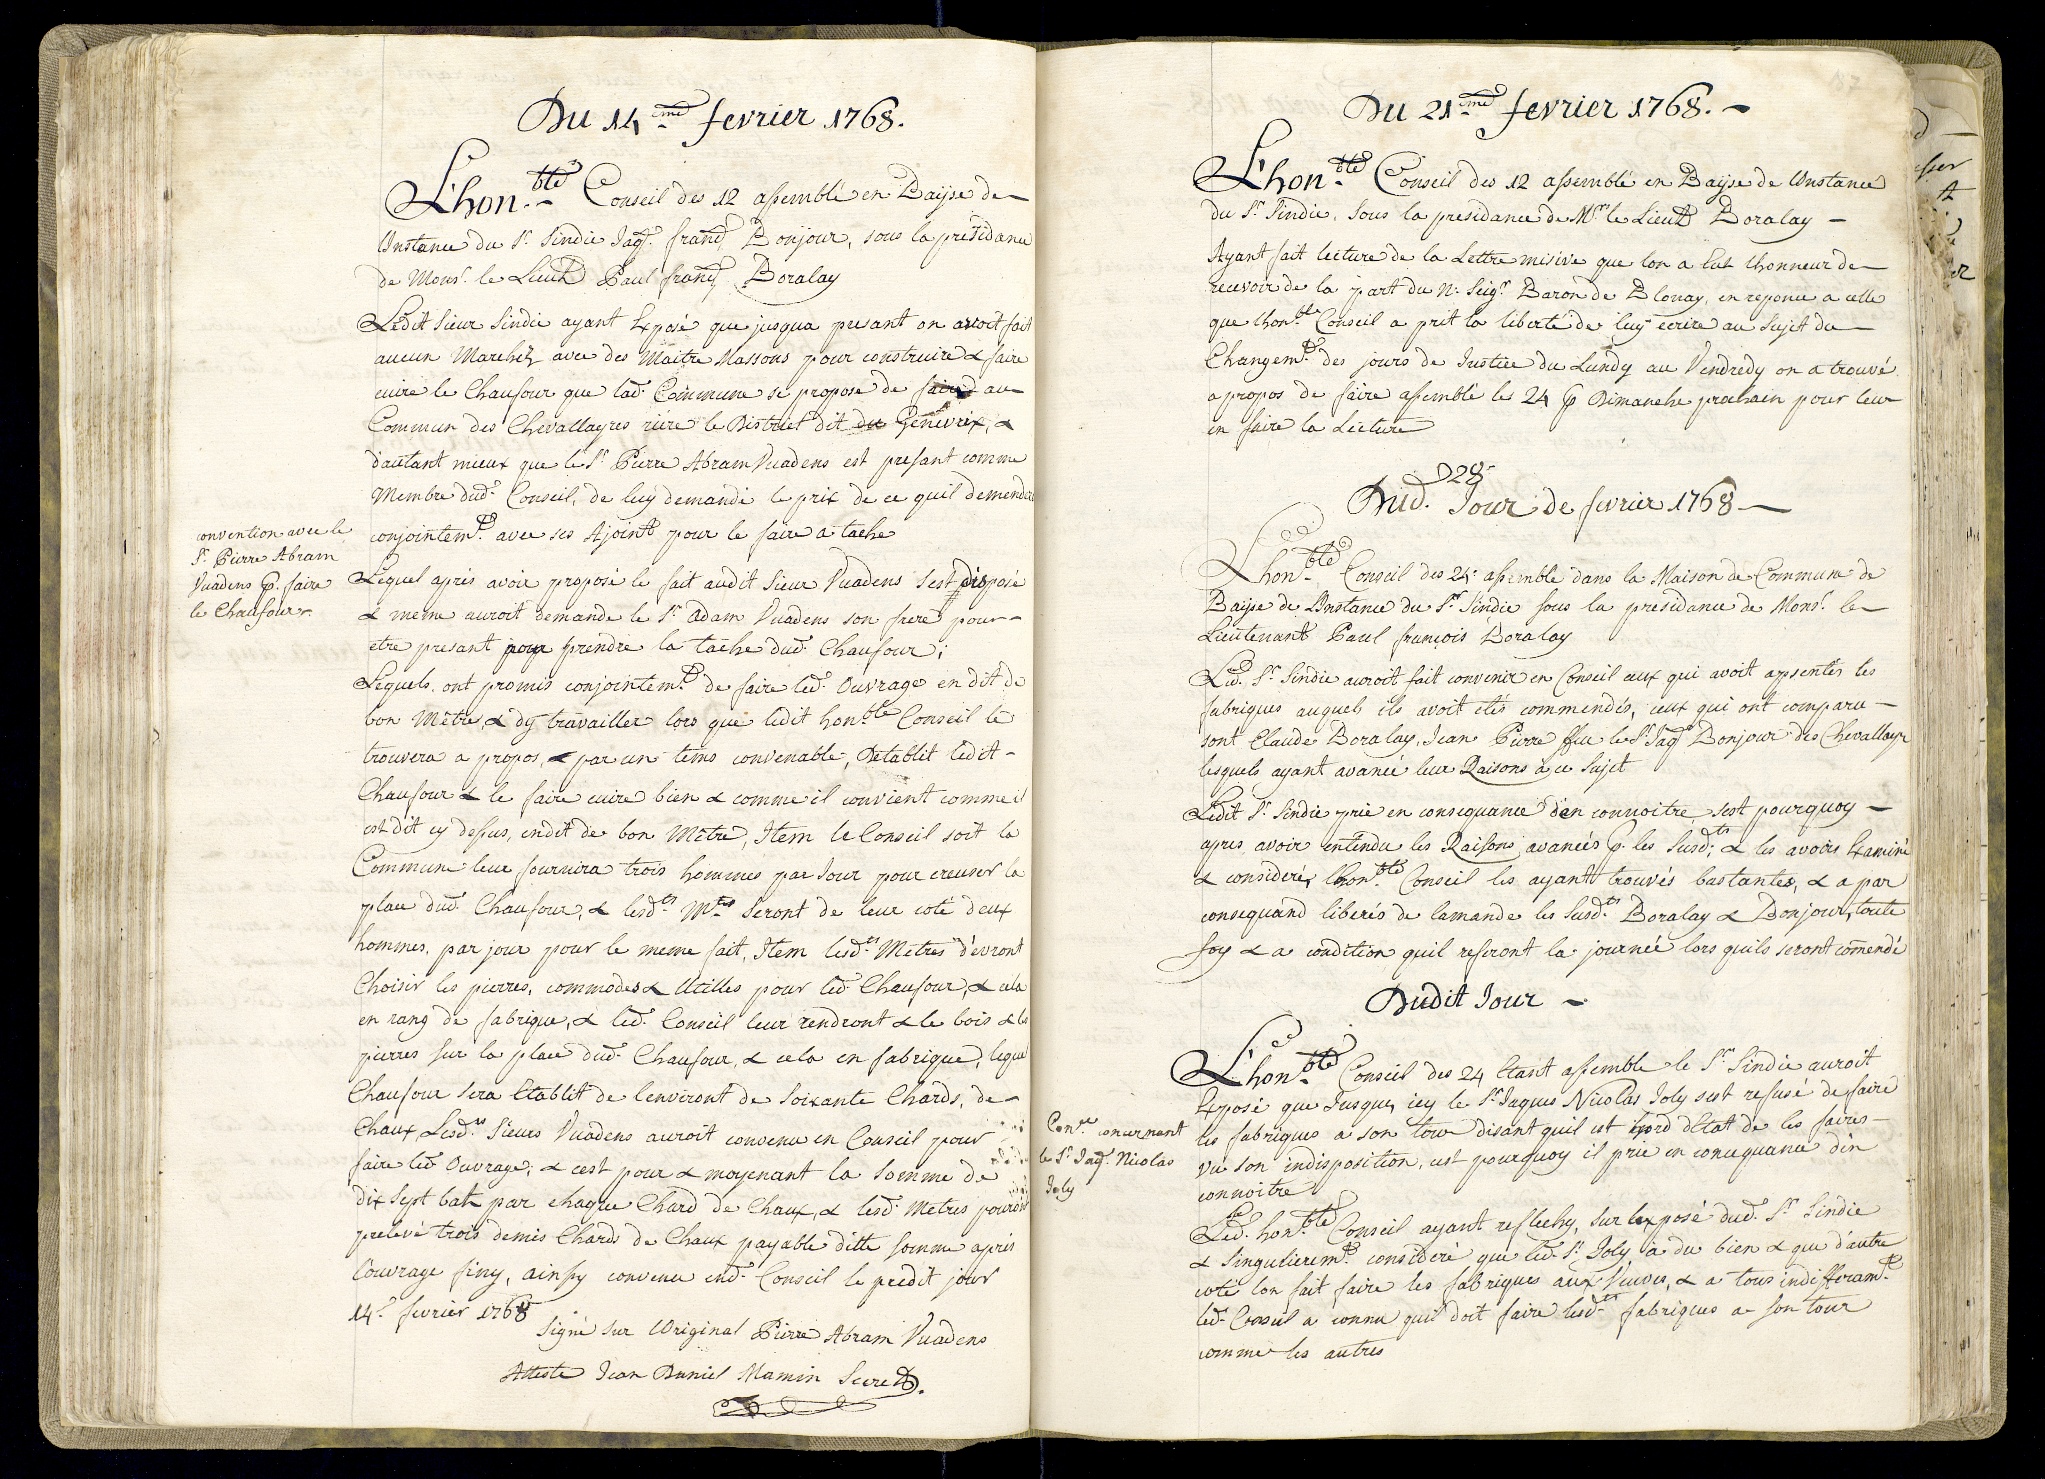 Du 14.me fevrier 1768.
L'hon.ble Conseil des 12 assemblé en Baÿse de
L'instance du Sr. Sindic Jaq.s franç. Bonjour, sous la présidance
de Mons.r le Lieut.t Paul franç. Boralay
Ledit Sieur Sindic ayant Exposé que jusqua present on avoit fait
aucun Marchéz avec des Maitre Massons pour construire & faire
cuire le Chaufour que lad.e Commune se propose de faire au
Commun des Chevallayres riere le District dit du Genevrex, &
d'autant mieux que le Sr. Pierre Abram Vuadens est present comme
Membre dud.t Conseil, de luy demandé le prix de ce quil demende
conjointem.t avec ses Ajoint pour le faire a tache
convention avec le
Sr. Pierre Abram
Vuadens p. faire
le Chaufour
Lequel après avoir proposé le fait audit Sieur Vuadens s'est disposé
& meme auroit demande le Sr. Adam Vuadens son frere pour
etre presant pour prendre la tâche dud.t Chaufour;
Lequels ont promis conjointem.t de faire led.t Ouvrage en dit de
bon Mêtre, & d'ÿ travailler lors que ledit hon.ble Conseil le
trouvera a propos, & par un tems convenable, Detablit ledit
Chaufour & le faire cuire bien & comme il convient comme il
est dit cy dessus, endit de bon Mêtre, Item le Conseil soit la
Commune leur fournira trois hommes par Jour pour creuser la
place dud.t Chaufour, & lesd.ts M.tres Seront de leur coté deux
hommes, par jour pour le meme fait, Item lesd.ts Metres d'evront
Choisir les pierres, commodes & Utilles pour led.t Chaufour, & cela
en rang de fabrique, & led.t Conseil leur rendront & le bois & les
pierres sur la place dud.t Chaufour, & cela en fabrique, lequel
Chaufour sera Etablit de lenviront de Soixante Chards, de
Chaux, Lesd.ts Sieurs Vuadens auroit convenu en Conseil pour
faire led.t Ouvrage; & cest pour & moyenant la Somme de
dix Sept batz par chaque Chard de Chaux, & lesd.ts Metres pouront
prelevé trois demis Chards de Chaux payable ditte Somme après
l'ouvrage finy, ainsy convenu end.t Conseil le predit jour
14.e fevrier 1768
Signé sur l'Original Pierre Abram Vuadens
Atteste Jean Daniel Mamin Secret.
Du 21.me fevrier 1768.
L'hon.ble Conseil des 12 assemblé en Baÿse de L'instance
du Sr. Sindic, Sous la presidance de Mr. le Lieut.t Boralay
Ayant fait lecture de la Lettre misive que lon a Eut lhonneur de
recevoir de la part du N. Seigr. Baron de Blonay, en reponce a celle
que lhon.ble Conseil a prit la liberté de luy ecrire au Sujet du
Changem.t des jours de Justice du Lundy au Vendredy on a trouvé
a propos de faire assemblé les 24 p. Dimanche prochain pour leur
en faire la Lecture
Dud. 28. Jour de fevrier 1768
Lhon.ble Conseil des 24 assemblé dans la Maison de Commune de
Baÿse de L'instance du Sr. Sindic sous la presidance de Mons.r le
Lieutenant Paul françois Boralay
Led. Sr. Sindic auroit fait convenir en Conseil ceux qui avoit apsentés les
fabriques auquels ils avoit etés commendés, ceux qui ont comparu
sont Claude Boralay, Jean Pierre ffeu le Sr. Jaq.s Bonjour des Chevallayr
lesquels ayant avancé leur Raisons à ce Sujet
Ledit Sr. Sindic prie en consequance d'en connoitre, sest pourquoy
apres avoir entendu les Raisons avancés p. les Susd.ts & les avoirs Examiné
& consideré, L'hon.ble Conseil les ayant trouvés bastantes, & a par
consequand liberés de lamande les Susd.ts Boralay & Bonjour, toute
foy & a condition quil referont la journée lors quils seront comendé
Dudit Jour
L'hon.ble Conseil des 24 Etant assemble le Sr. Sindic auroit
Exposé que Jusques icy le Sr. Jaques Nicolas Joly sest refusé de faire
les fabriques a son tour disant quil est hord dEtat de les faires
vu son indisposition, cest pourquoy il prie en concequance d'en
connoitre
concernant
le Sr. Jaq.s Nicolas
Joly
Led. hon.ble Conseil ayant reflechy, sur lexposé dud.t Sr. Sindic
& Singulierem.t consideré que led.t Sr. Joly à du bien & que d'autre
coté lon fait faire les fabriques aux Veuves, & a tous indifferam.t
led.t Conseil a connu quil doit faire lesd.ts fabriques a son tour
comme les autres